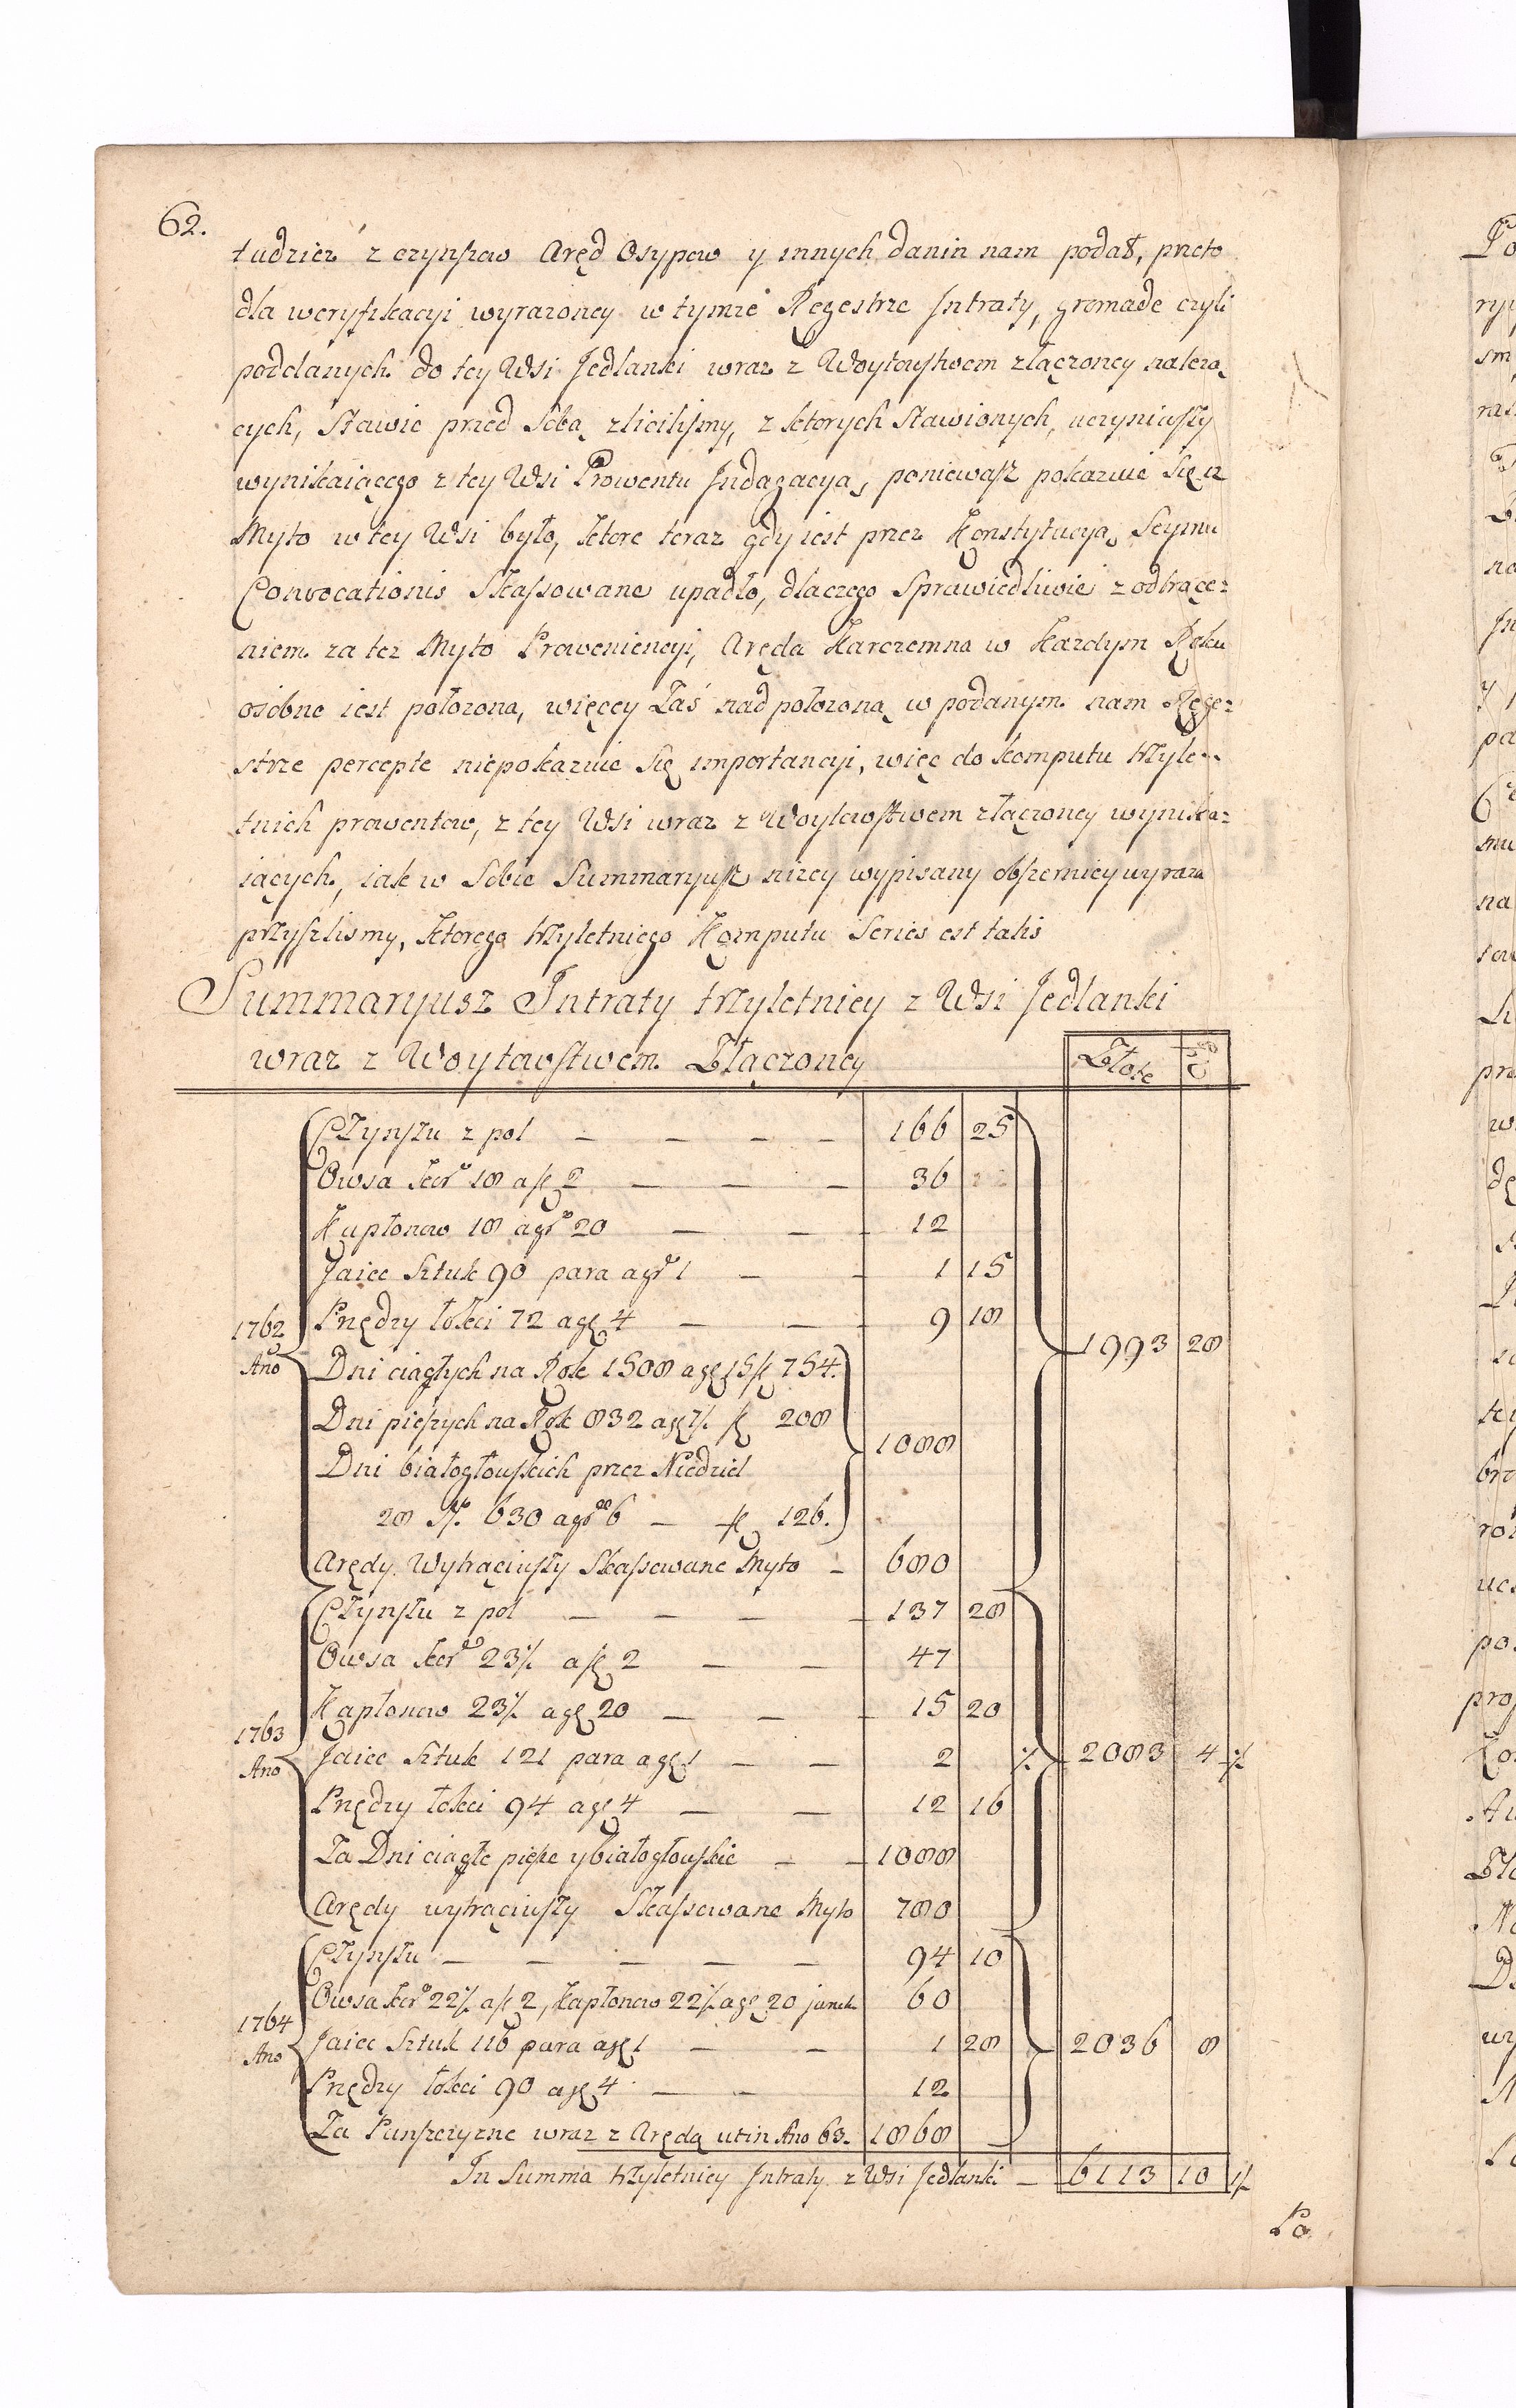 62.
tudzież z czynszow Aręd Osypow y innych danin nam podał, przeto
dla weryfikacyi wyrażoney w tymże Regestrze Intraty, gromadę czyli
poddanych do tey Wsi Jedlanki wraz z Woytowstwem złączoney należą
cych, stawić przed Sobą zliciliśmy, z ktorych stawionych, uczyniwszy
wynikaiącego z tey Wsi Prowentu Indagacyą, ponieważ pokazuie się iż
Myto w tey Wsi było, ktore teraz gdy iest przez Konstytucyą Seymu
Convocationis Skassowane upadło, dlaczego Sprawiedliwie z odtrące=
niem za też Myto Proweniencyi, Aręda Karczemna w Każdym Roku
osobno iest położona, więcey Zaś nad położoną w podanym nam Rege=
strze perceptę niepokazuie się importancyi, więc do komputu trzyle=
tnich prowentow, z tey Wsi wraz z Woytowstwem złączoney wynika=
iących, iak w Sobie Summaryusz niżey wypisany obszerniey wyraża
przyszlismy, ktorego trzyletniego Komputu Series est talis
Summaryusz Intraty trzyletniey z Wsi Jedlanki
wraz z Woytowstwem Złączoney Złote gr
Czynszu z pol — — — — 166 25
Owsa kor. 18 a fl 2 — — — 36
Kapłonow 18 a gr 20 — — 12
Jaiec Sztuk 90 para a gr 1 — — 1 15
1762 Przędzy łokci 72 a gr 4 — — 9 18
Ano Dni ciągłych na Rok 1508 a gr 15 fl 754. 1993 28
Dni pieszych na Rok 832 a gr 7½ fl 208
1088
Dni białogłowskich przez Niedziel
28 N. 630 a gr 6 — fl 126.
Arędy Wytrąciwszy Skassowane Myto — 680
Czynszu z pol — — — — 137 28
Owsa kor 23½ a fl 2 — — 47
Kapłonow 23½ a gr 20 — — — 15 20
1763 Ano Jaiec Sztuk 121 para a gr 1 — — 2 ½ 2083 4 ½
Przędzy łokci 94 a gr 4 — — 12 16
Za Dni ciągłe piesze y białogłowskie — — 1088
Arędy wytrąciwszy Skassowane Myto 780
Czynszu — — — — — 94 10
Owsa kor 22½ a fl 2, Kapłonow 22½ a gr 20 junct. 60
1764 Ano Jaiec Sztuk 116 para a gr 1 — — 1 28 2036 8
Przędzy łokci 90 a gr 4 — — 12
Za Panszczyznę wraz z Arędą ut in Ano 63. 1868
In Summa trzyletniey Intraty z Wsi Jedlanki — 6113 10 ½
Po